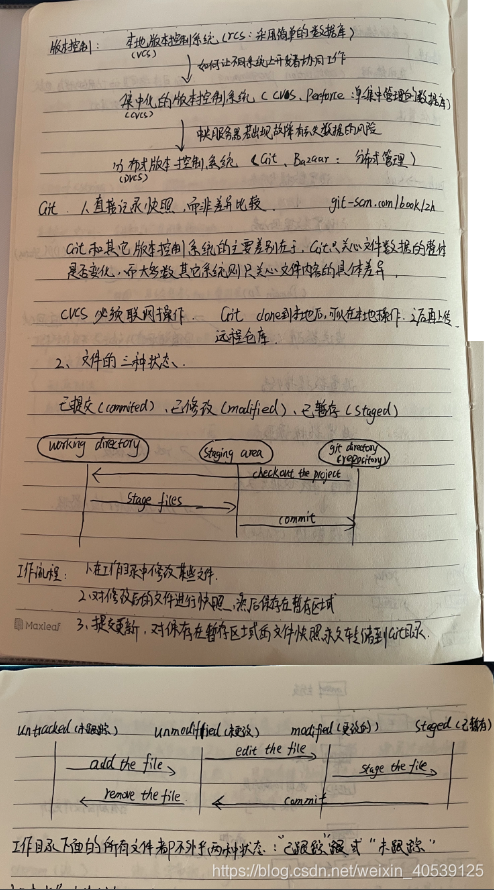 版本控制: 本地版本控制系统 (rcs: 采用简单的数据库)
(VCS)
如何让不同系统上开发者协同工作
集中化的版本控制系统 (CVCS, Perforce: 单集中管理的数据库)
(CVCS)
中央服务器若出现故障有丢数据的风险
分布式版本控制系统 (Git, Bazaar: 分布式管理)
(DVCS)
Git 1.直接记录快照,而非差异比较 git-scm.com/book/zh
Git和其它版本控制系统的主要差别在于,Git只关心文件数据的整体
是否变化,而大多数其它系统则只关心文件内容的具体差异.
CVCS 必须联网操作. Git clone到本地后,可以在本地操作,之后再上传
远程仓库.
2、文件的三种状态.
已提交(commited)、已修改(modified)、已暂存(staged)
working directory staging area git directory
(repository)
checkout the project
stage files
commit
工作流程: 1.在工作目录中修改某些文件.
2.对修改后的文件进行快照,然后保存在暂存区域
3、提交更新,对保存在暂存区域的文件快照永久转储到Git目录.
Maxleaf
untracked(未跟踪) unmodified(未更改) modified(更改的) staged(已暂存)
edit the file
add the file stage the file
remove the file commit
工作目录下面的所有文件都不外乎两种状态:"已跟踪"或"未跟踪"
https://blog.csdn.net/weixin_40539125